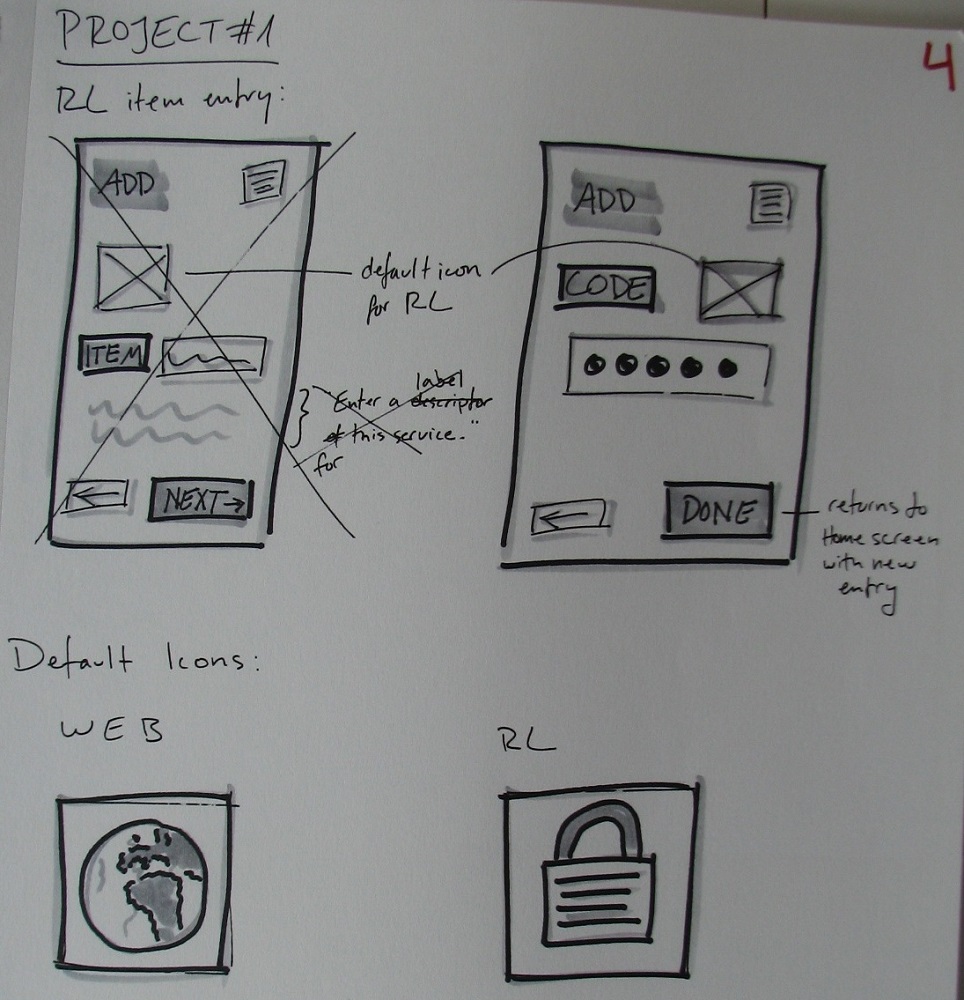 PROJECT #1
4
RL item entry:
ADD
ITEM
NEXT→
default icon
for RL
label
Enter a descriptor
of this service."
for
ADD
CODE
DONE
returns to
Home screen
with new
entry
Default Icons:
WEB
RL